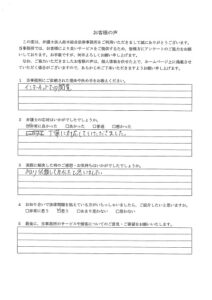 お客様の声
この度は、弁護士法人 総合法律事務所をご利用いただきまして誠にありがとうございます。
当事務所では、お客様により良いサービスをご提供するため、皆様方にアンケートのご協力をお願い
しております。お手数ですが、何卒よろしくお願い申し上げます。
なお、ご協力いただきましたお客様の声は、個人情報を伏せた上で、ホームページ上に掲載させて
いただく場合がございますので、あらかじめご了承いただきますようお願い申し上げます。
1 当事務所にご依頼された理由や決め手をお教えください。
インターネットでの閲覧
2 弁護士の応対はいかがでしたでしょうか。
非常に良かった □良かった □普通 □悪かった
丁寧に対応していただきました。
3 実際に依頼した時のご感想・お気持ちはいかがでしたでしょうか。
お願いして良かったと思いました
4 お知り合いで法律問題を抱えている方がいらっしゃいましたら、ご紹介したいと思いますか。
□非常に思う 思う □あまり思わない □思わない
5 最後に、当事務所のサービスや接客についてのご意見・ご要望をお願いいたします。